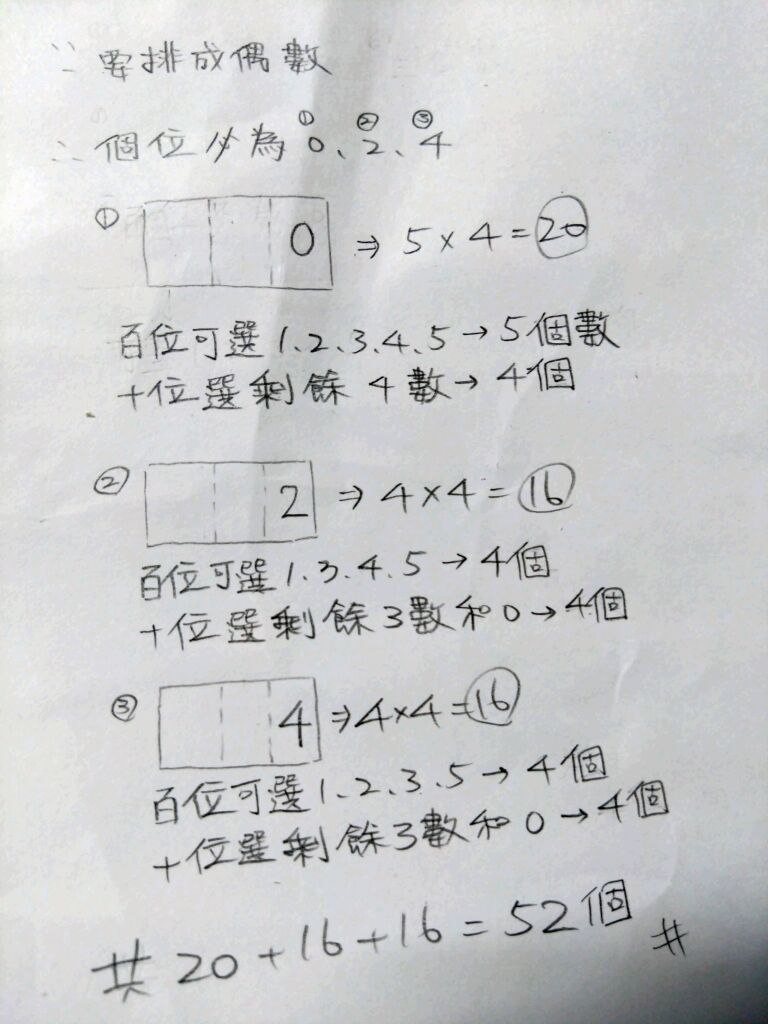 ∵ 要排成偶數
① ② ③
∴ 個位必為 0、2、4
① 0 ⇒ 5×4=20
百位可選1.2.3.4.5→5個數
十位選剩餘4數→4個
② 2 ⇒ 4×4=16
百位可選1.3.4.5→4個
十位選剩餘3數和0→4個
③ 4 ⇒4×4=16
百位可選1.2.3.5→4個
十位選剩餘3數和0→4個
共20+16+16=52個 #